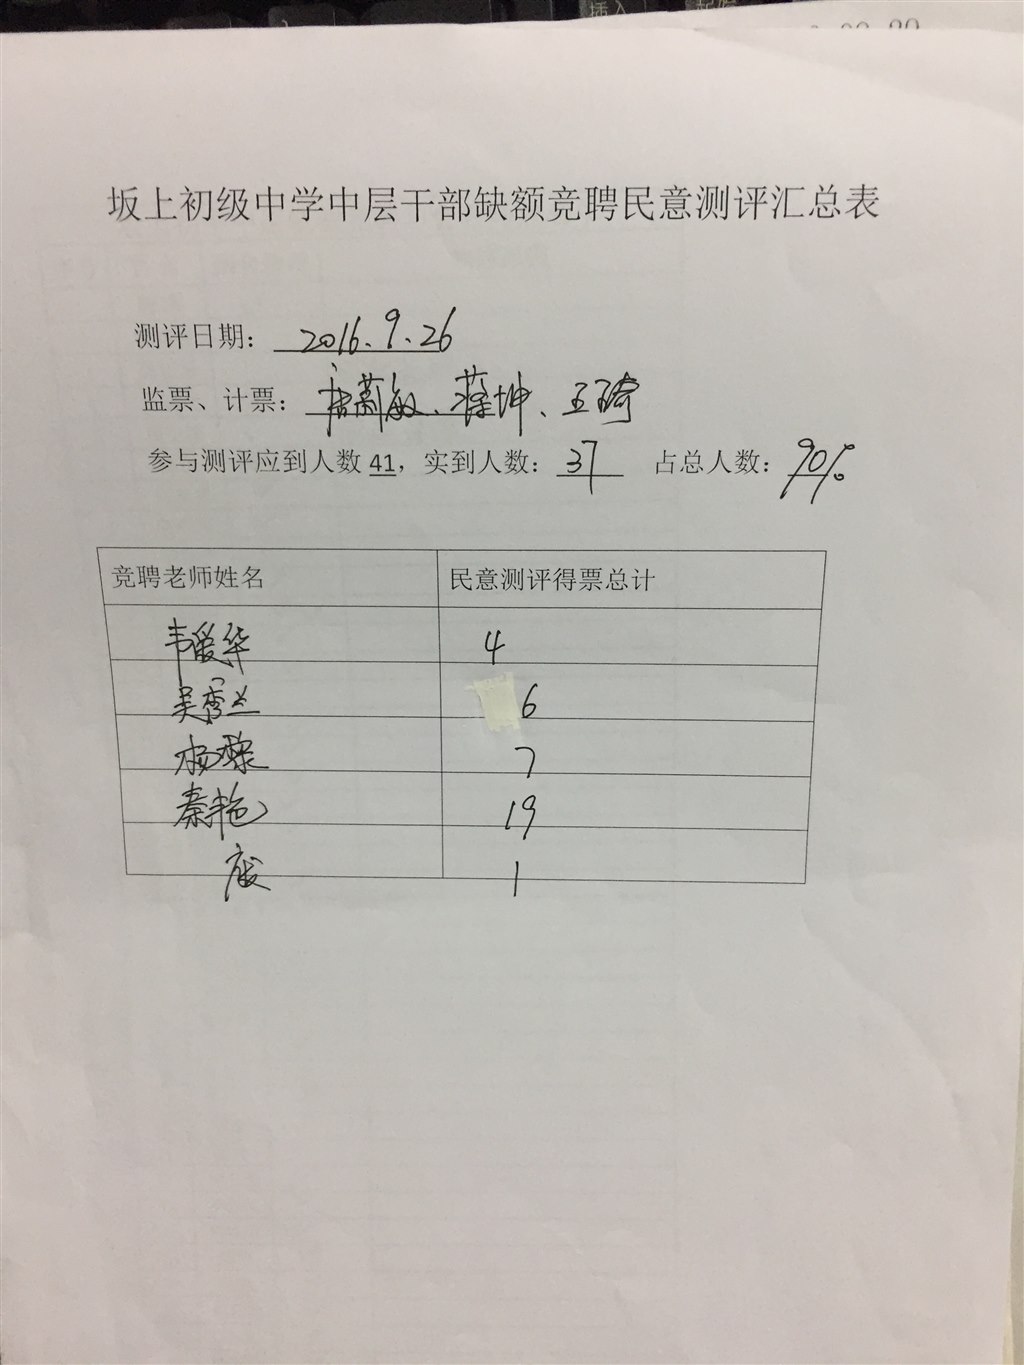 插入
坂上初级中学中层干部缺额竞聘民意测评汇总表
测评日期：2016.9.26
监票、计票：唐萧敏、蒋坤、王琦
参与测评应到人数 41，实到人数：37 占总人数：90%
竞聘老师姓名 民意测评得票总计
韦爱华 4
吴秀兰 6
杨 7
秦艳 19
废 1